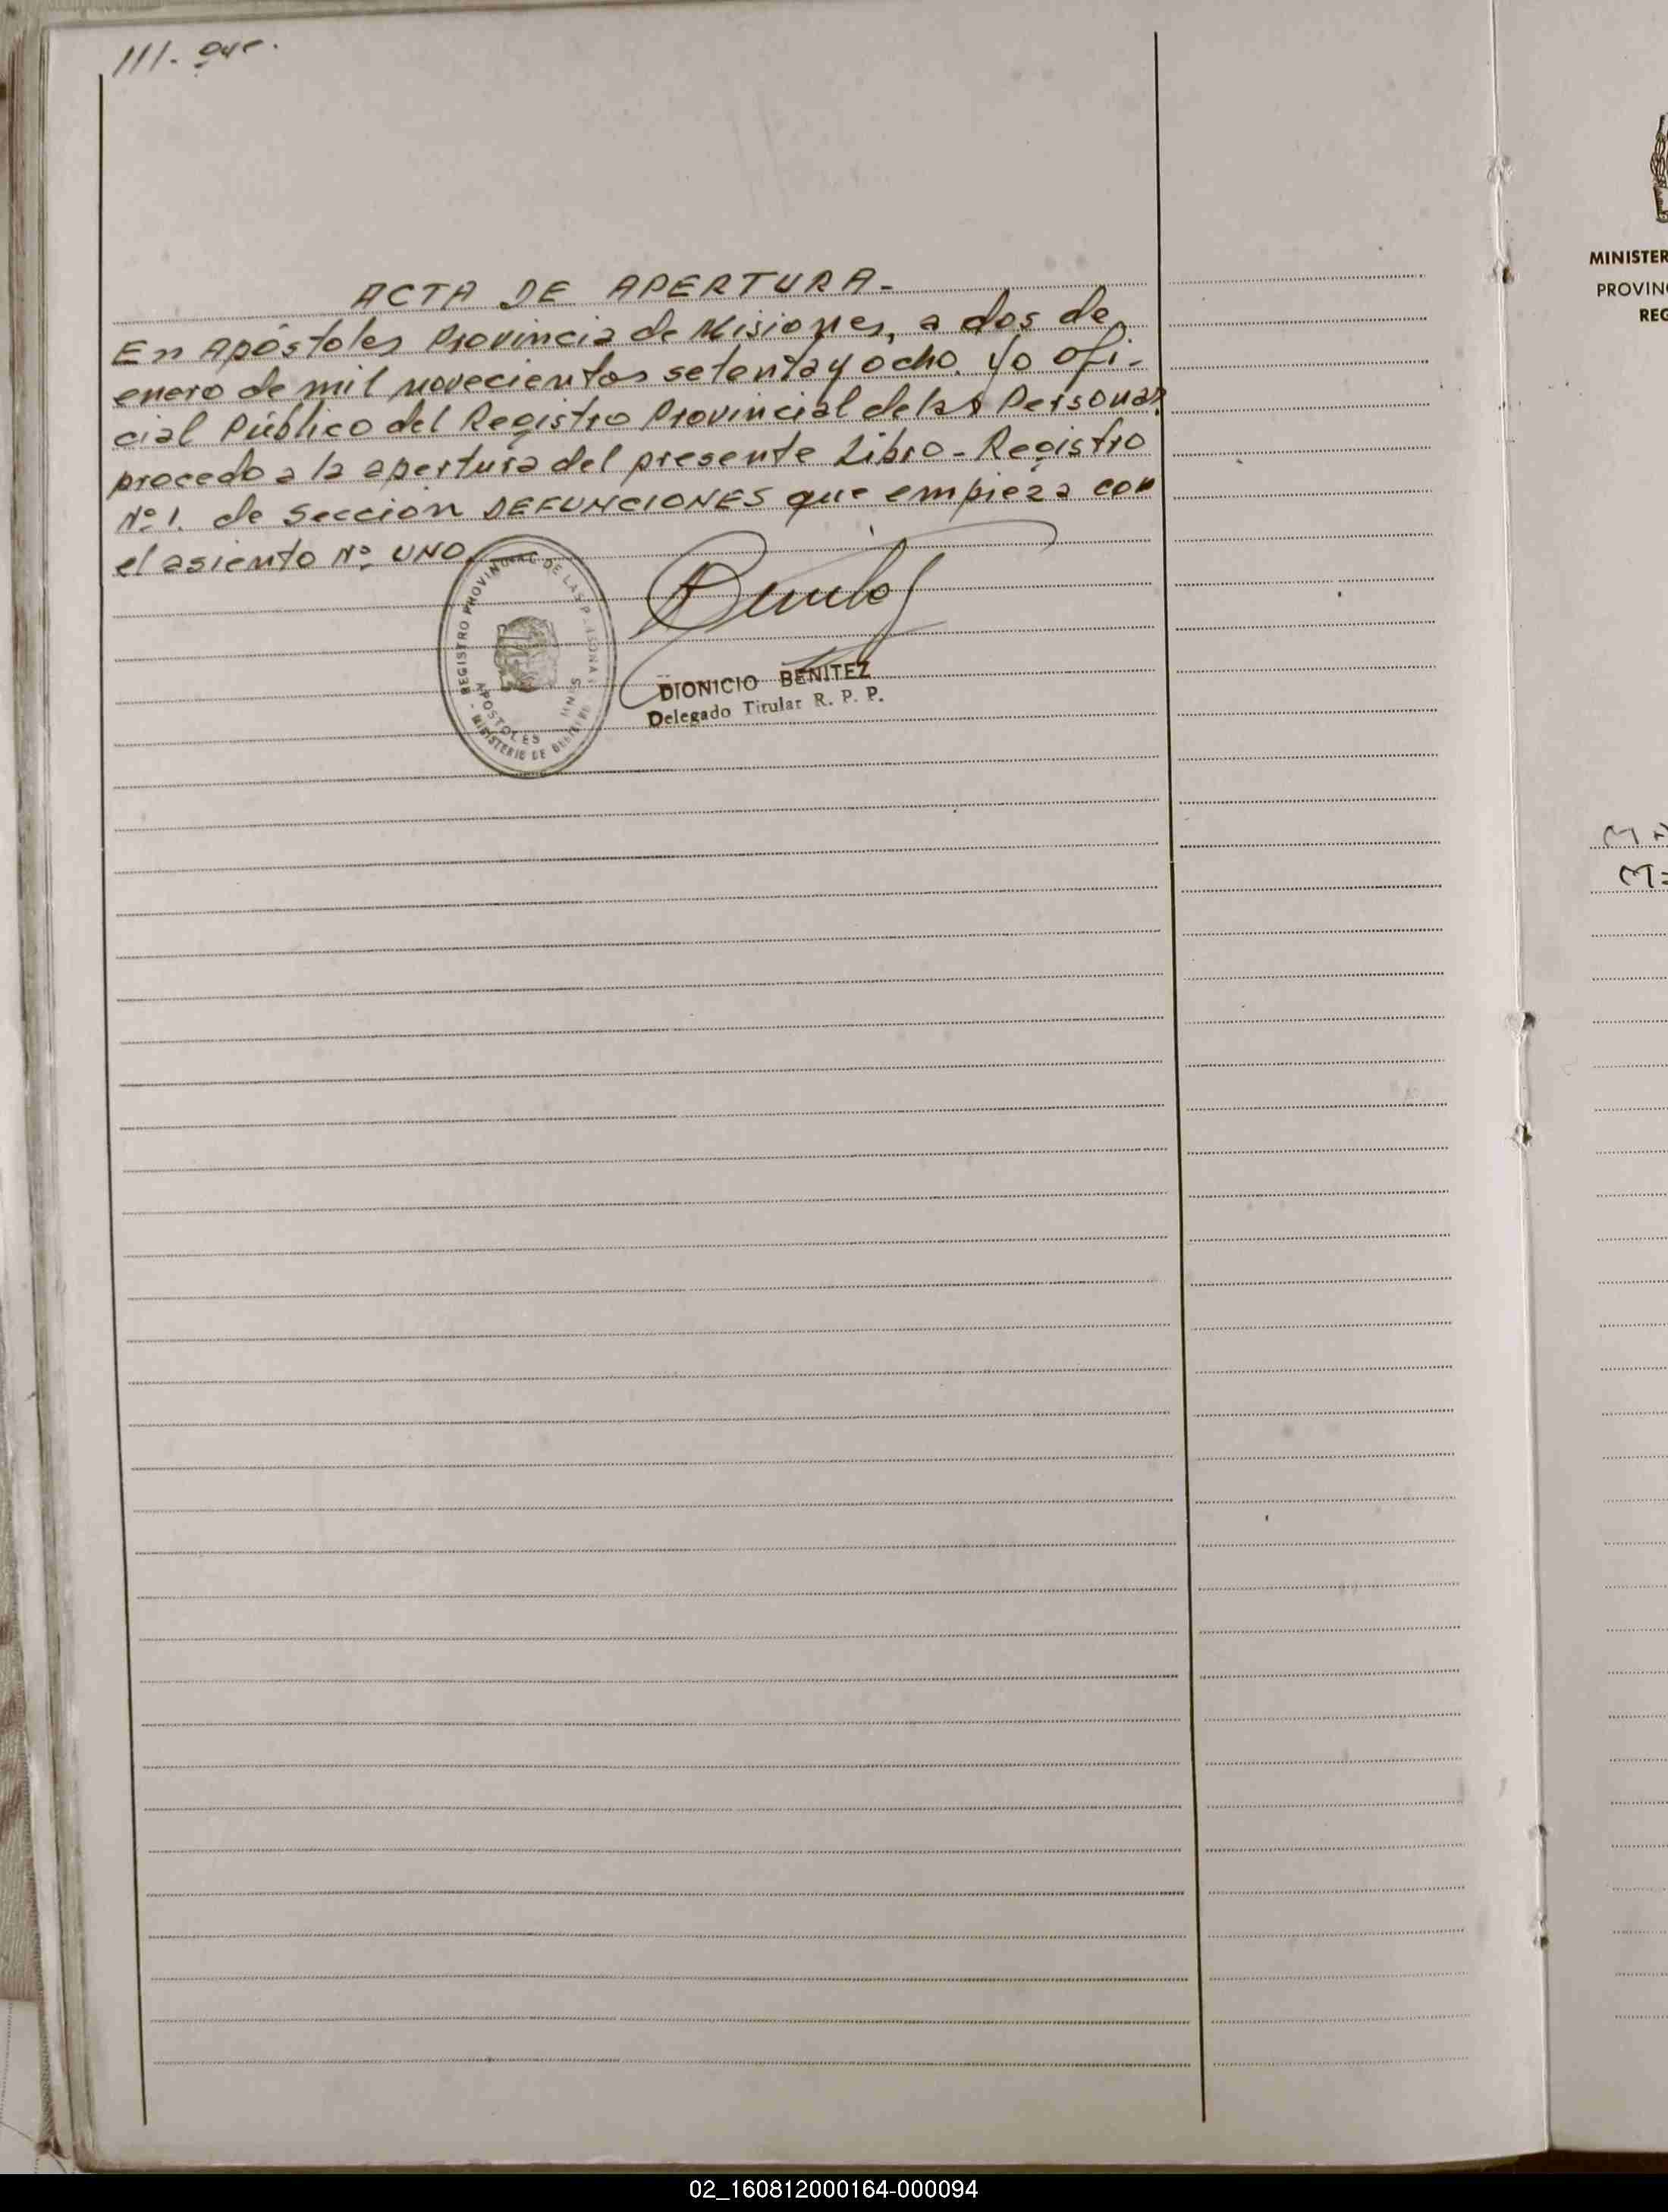 ///. que.
ACTA DE APERTURA-
En Apóstoles Provincia de Misiones, a dos de
enero de mil novecientos setenta y ocho. Yo ofi-
cial Público del Registro Provincial de las Personas
procedo a la apertura del presente Libro-Registro
Nº 1. de sección DEFUNCIONES que empieza con
el asiento Nº UNO.
REGISTRO PROVINCIAL DE LAS PERSONAS
APOSTOLES
MNES
MINISTERIO DE
DIONICIO BENITEZ
Delegado Titular R. P. P.
MINISTER
PROVINC
REG
02_160812000164-000094